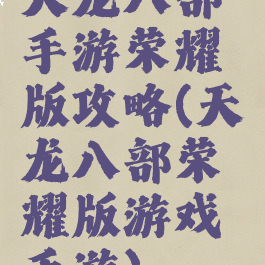 天龙八部
手游荣耀
版攻略(天
龙八部荣
耀版游戏
手游)